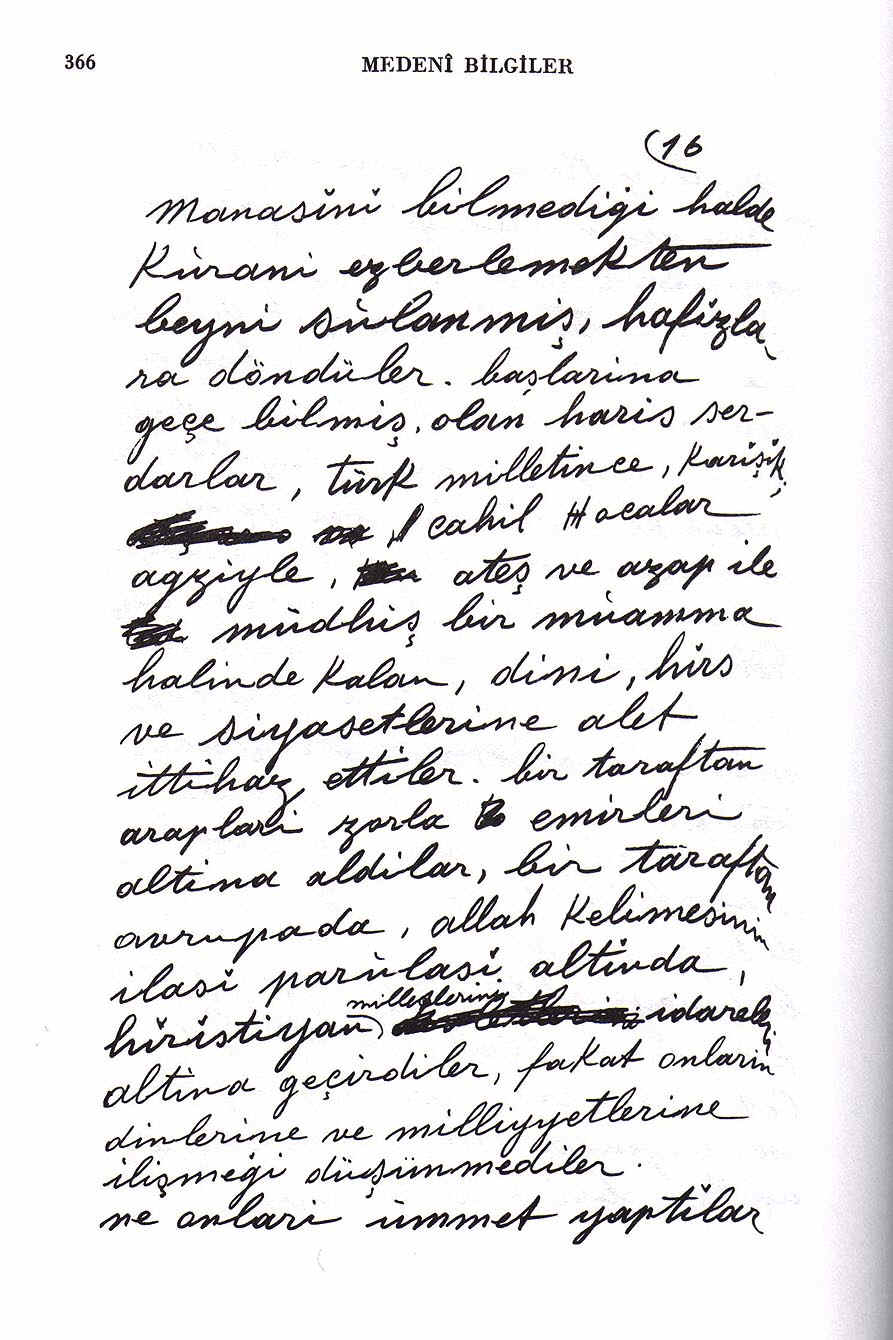 366
MEDENÎ BİLGİLER
(16
Manasĭnĭ bilmediği halde
Kùrani ezberlemekten
beyni sùlanmiş, hafĭzla
ra döndüler. başlarına
geçe bilmiş, olan haris ser-
darlar, türk milletince, karĭşĭk,
cahil Hocalar
agziyle, ateş ve azap ile
müdhiş bir müamma
halinde kalan, dini, hĭrs
ve siyasetlerine alet
ittihaz ettiler. bir taraftan
araplari zorla emirleri
altina aldilar, bir taraftan
avrupada, allah kelimesinin
ilasĭ parùlasĭ altĭnda,
milletlerini
hĭrĭstiyan idareleri
altina geçirdiler, fakat onlarin
dinlerine ve milliyyetlerine
ilişmeği düşünmediler.
ne onlari ümmet yaptĭlar